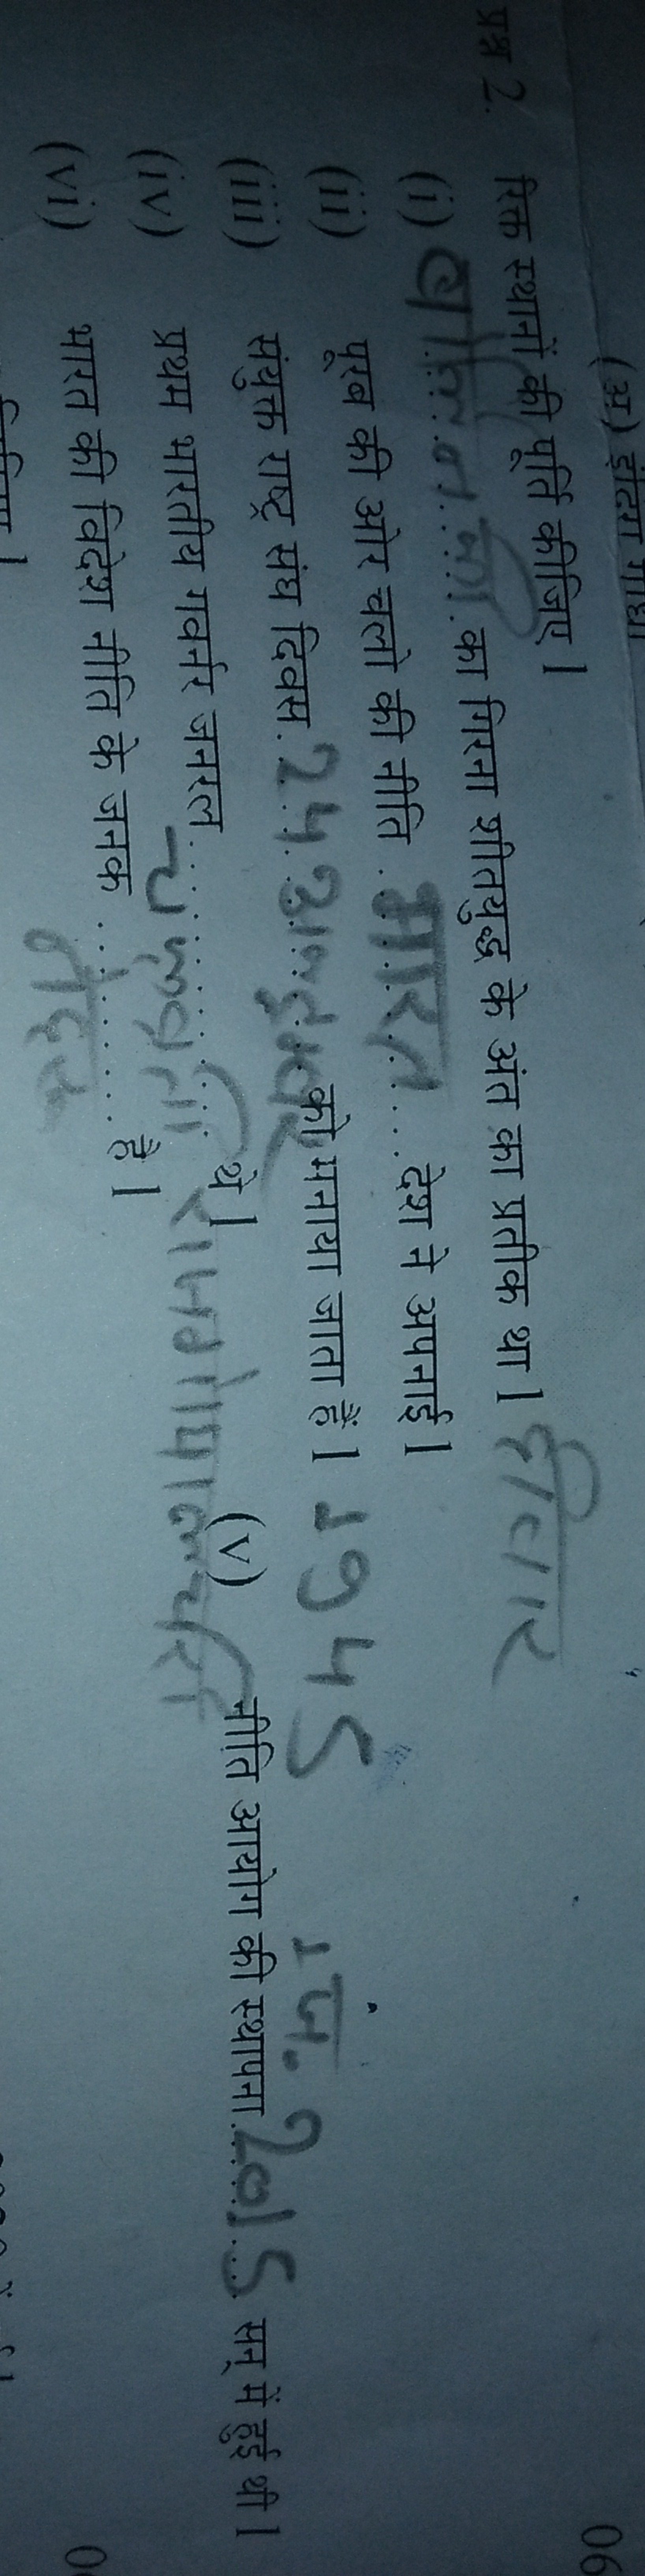 (अ) इंदिरा गांधी
06
प्रश्न 2. रिक्त स्थानों की पूर्ति कीजिए।
(i) बर्लिन की का गिरना शीतयुद्ध के अंत का प्रतीक था। दीवार
(ii) पूरब की ओर चलो की नीति भारत देश ने अपनाई।
(iii) संयुक्त राष्ट्र संघ दिवस 24 अक्टूबर को मनाया जाता है। 1945
(iv) प्रथम भारतीय गवर्नर जनरल चक्रवर्ती थे। राजगोपालचारी
(v) नीति आयोग की स्थापना 1 ज. 2015 सन् में हुई थी।
(vi) भारत की विदेश नीति के जनक ........ है।
नेहरू